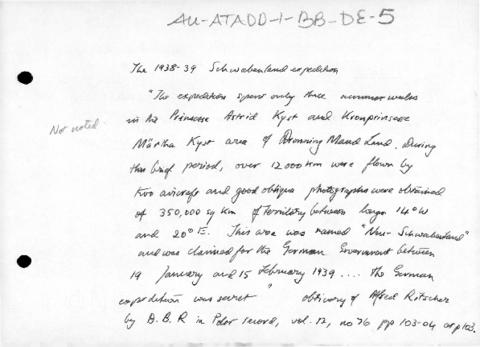 AU-ATADD-1-BB-DE-5
The 1938-39 Schwabenland expedition
"The expedition spent only three summer weeks
in the Prinsesse Astrid Kyst and Kronprinsesse
Not noted
Märtha Kyst area of Dronning Maud Land. During
this brief period, over 12000 km were flown by
two aircraft and good oblique photographs were obtained
of 350,000 sq km of territory between longs 14°W
and 20°E. This area was named "Neu-Schwabenland"
and was claimed for the German Government between
19 January and 15 February 1939 .... The German
expedition was secret" obituary of Alfred Ritscher
by B.B.R in Polar Record, vol. 12, no 76 pp 103-04 at p103.